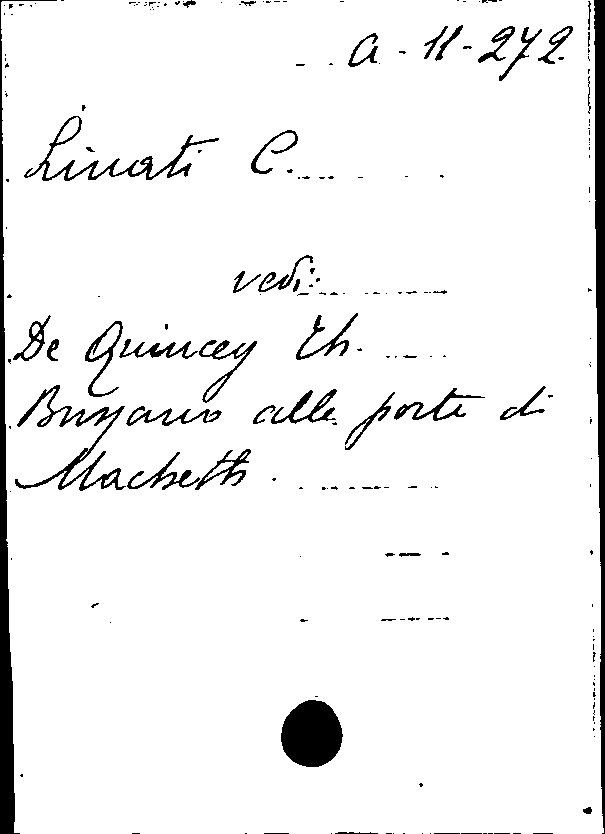 A-11-272
Linati C.
vedi:
De Quincey Th.
Bussano alle porte di
Macbeth.